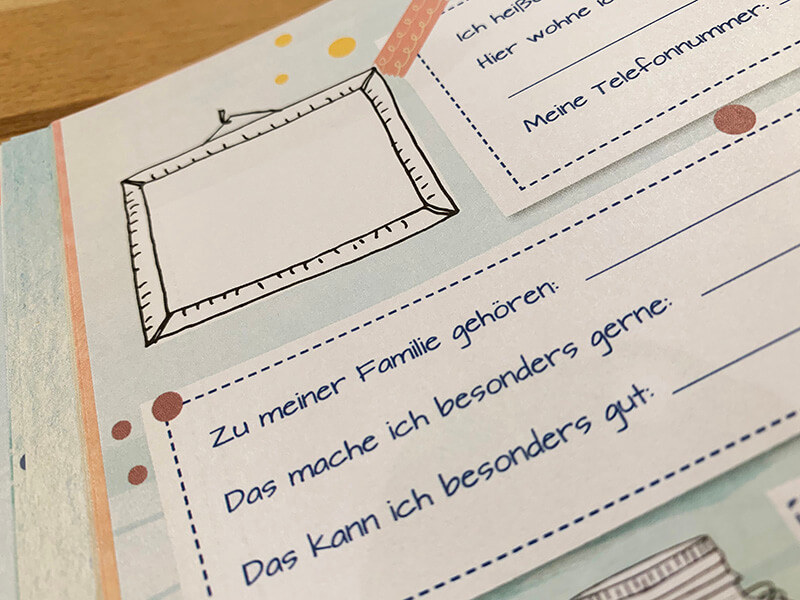 Ich heiße
Hier wohne
Meine Telefonnummer:
Zu meiner Familie gehören:
Das mache ich besonders gerne:
Das kann ich besonders gut: